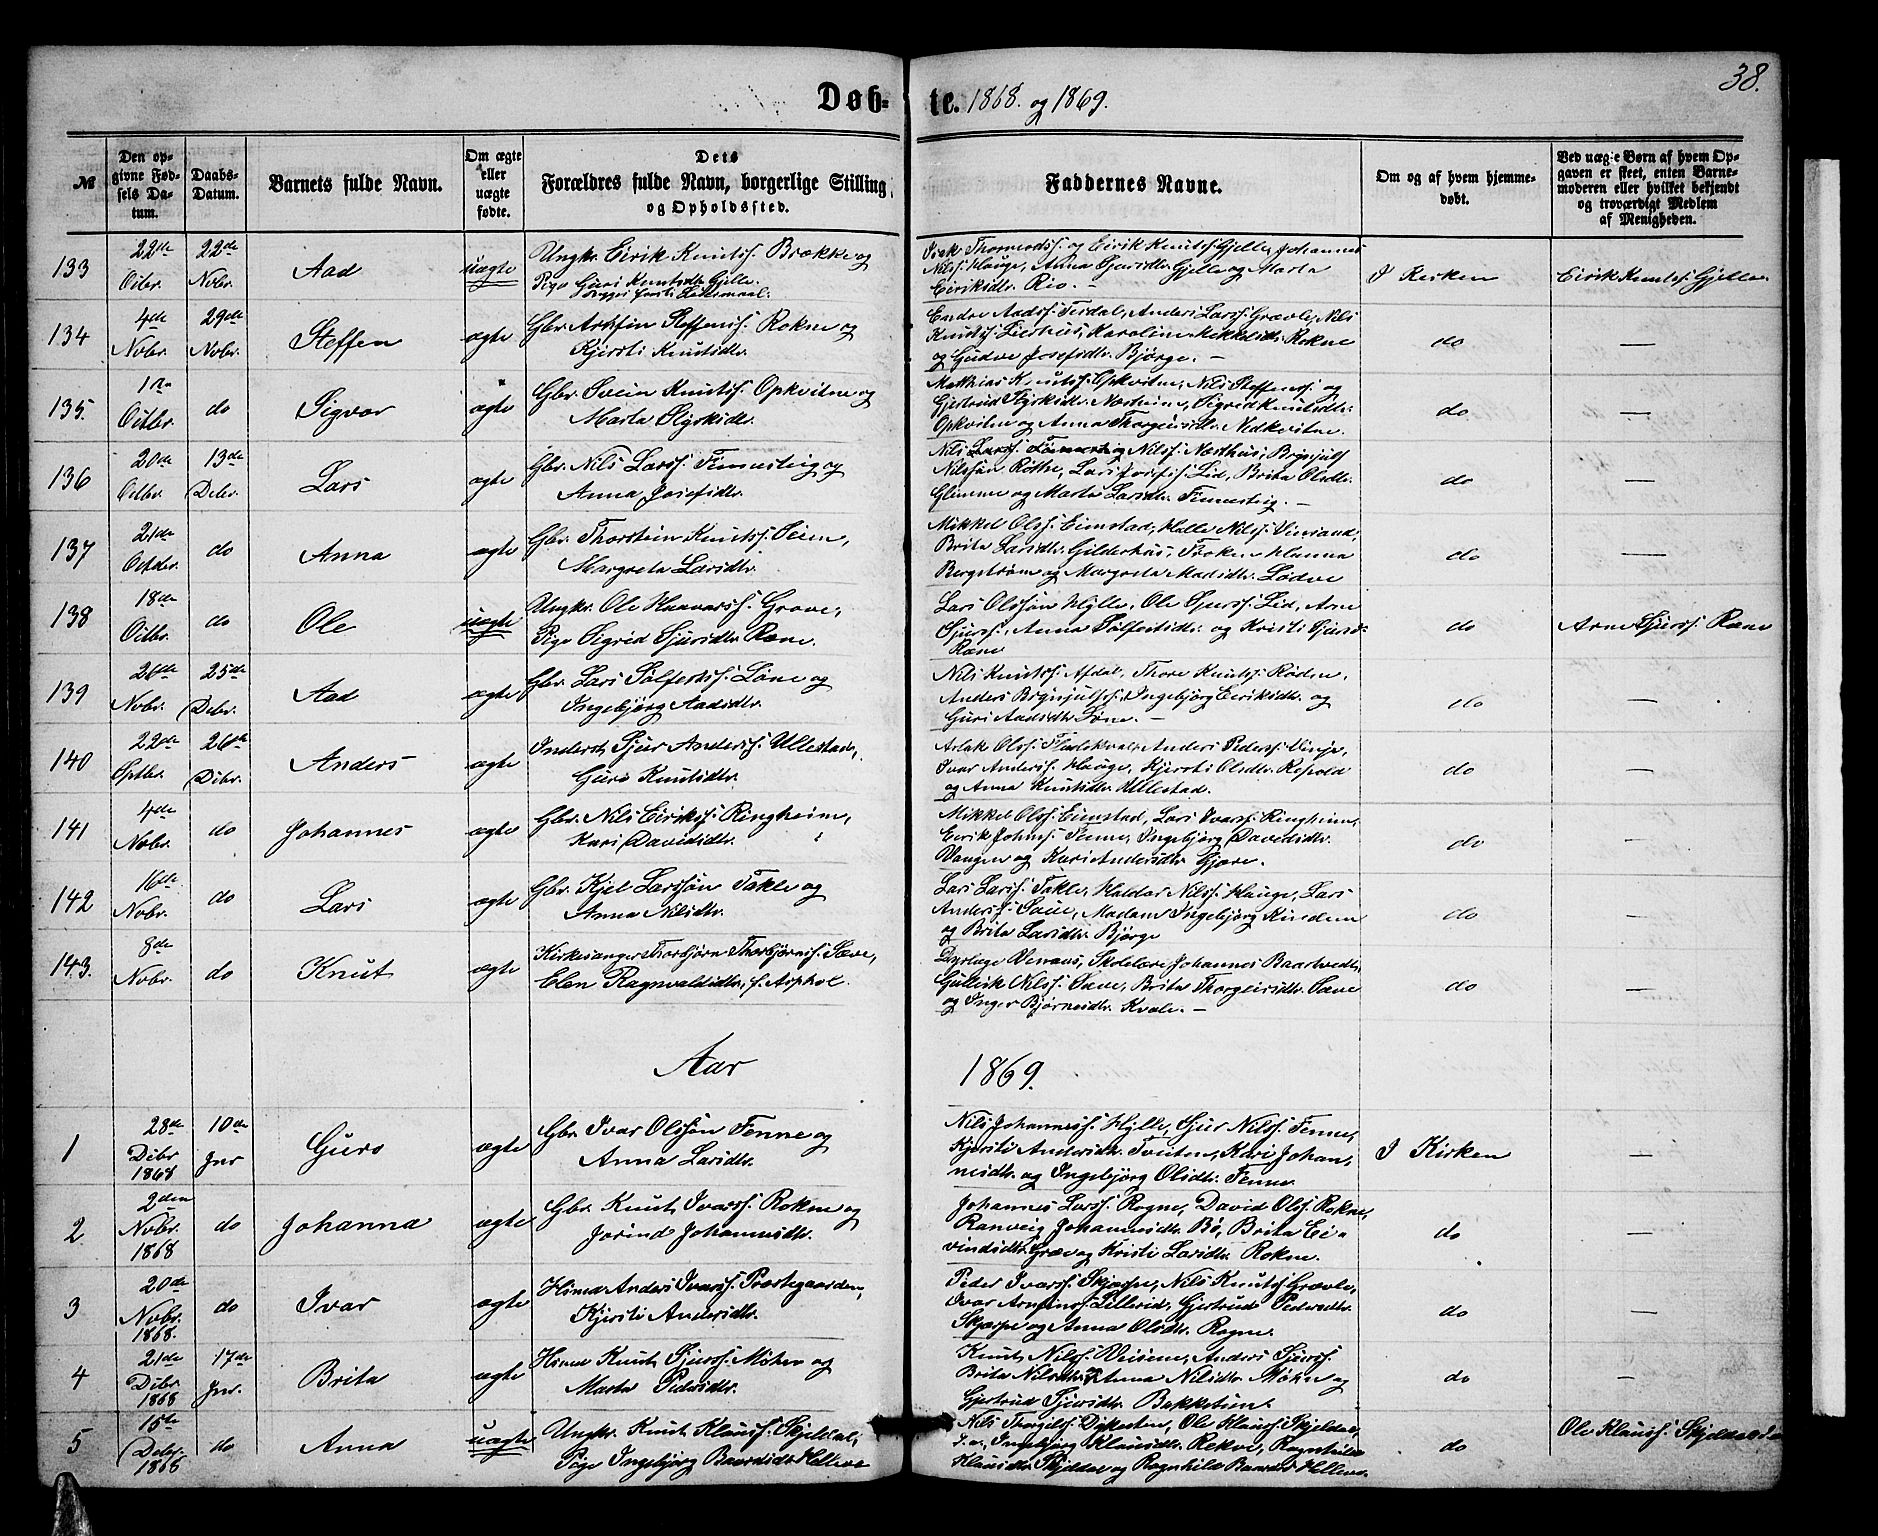 38.
Døb- te. 1868. og 1869.
№
Den op-
givne Fød-
sels Da-
tum.
Daabs-
Datum.
Barnets fulde Navn.
Om ægte
eller
uægte
fødte.
Dets
Forældres fulde Navn, borgerlige Stilling
og Opholdssted.
Faddernes Navne.
Om og af hvem hjemme-
døbt.
Ved uægte Børn af hvem Op-
gaven er skeet, enten Barne-
moderen eller hvilket bekjendt
og troværdigt Medlem
af Menigheden.
133 22de Octbr. 22de Nobr. Aad uægte
Ungkr. Eirik Knuts. Brække og
Pige Guri Knutsdtr. Gjelle.
Begges første Leiermaal.
Isak Thormods. og Eirik Knuts. Gjelle, Johannes
Nils. Hauge, Anna Sjursdtr. Gjelle og Marta
Eiriksdtr. Rio. —
I Kirken
Eirik Knuts. Gjelle.
134 4de Nobr. 29de Nobr. Steffen ægte
Gbr. Arnfin Steffens. Rokne og
Kjersti Knutsdtr.
Endre Aads. Tesdal, Anders Lars. Grævle, Nils
Knuts. Lieshus, Karoline Mikkelsdtr. Rokne
og Gudve Josefsdtr. Bjørge. —
do —
135. 1ste Octbr. do Sigvor ægte
Gbr. Svein Knuts. Opkvitne og
Marta Styrksdtr.
Matthias Knuts. Opkvitne, Nils Steffens. og
Gjertrud Styrksdtr. Norheim, Sigrid Knutsdtr.
Opkvitne og Anna Thorgeirsdtr. Nedkvitne.
do —
136 20de Octbr. 13de Debr. Lars ægte
Gbr. Nils Lars. Finnesteig og
Anna Josefsdtr.
Nilsøn Røthe, Lars Josefs. Lid, Brita Olsdtr.
Glimme og Marta Larsdtr. Finnesteig. —
do —
137 21de Octbr. do Anna ægte
Gbr. Thorstein Knuts. Seim,
Margreta Larsdtr.
Mikkel Ols. Eimstad, Helle Nils. Vinsand,
Brita Larsdtr. Gilderhus, Frøken Hanna
Bergstrøm og Margreta Madsdtr. Lødve
do —
138 18de Octbr. do Ole uægte
Ungkr. Ole Haavars. Grove,
Pige Sigrid Sjursdtr. Rene.
Lars Olssøn Hylle, Ole Sjurs. Lid, Arne
Sjurs. Anna Sølfestsdtr. og Kristi Sjursd:
Rene
do Arne Sjurs. Rene
139 26de Nobr. 25de Debr. Aad ægte
Gbr. Lars Sølfests. Løne og
Ingebjørg Aadsdtr.
Nils Knuts. Afdal, Thore Knuts. Røden,
Anders Brynjulfs. Ingebjørg Eiriksdtr. og
Guri Aadsdtr. Løne. —
do —
140 22de Sptbr. 26de Debr. Anders ægte
Inderst Sjur Anders. Ullestad,
Guro Knutsdtr.
Aslak Ols. Flatekval, Anders Peders. Vinje,
Ivar Anders. Hauge, Kjersti Olsdtr. Repold
og Anna Knutsdtr. Ullestad.
do —
141 4de Nobr. do Johannes ægte
Gbr. Nils Eiriks. Ringheim,
Kari Davidsdtr.
Mikkel Ols. Eimstad, Lars Ivars. Ringheim,
Eirik Johns. Tenne, Ingebjørg Davidsdtr.
Vangen og Kari Andersdtr. Gjære.
do —
142 16de Nobr. do Lars ægte
Gbr. Kjel Larssøn Takle og
Anna Nilsdtr.
Lars Lars. Takle, Haldor Nils. Hauge, Lars
Anders. Saue, Madam Ingebjørg Kindem
og Brita Larsdtr. Bjørge
do —
143. 8de Nobr. do Knut ægte
Kirkesanger Thorbjørn Thorbjørns. Sæve,
Elen Ragnvaldsdtr. f. Asphol.
Dyrlæge Venaas, Skolelærer Johannes Baartvedt,
Gullik Nils. Sæve, Brita Thorgeirsdtr. Sæve
og Inger Bjørnsdtr. Kvale. —
do —
Aar 1869.
1 28de Debr. 1868 10de Jnr Guro ægte
Gbr. Ivar Olssøn Tenne og
Anna Larsdtr.
Nils Johannes. Hylle, Sjur Nils. Tenne,
Kjersti Andersdtr. Tveiten, Kari Johan-
nesdtr. og Ingebjørg Olsdtr. Tenne.
I Kirken —
2 2den Nobr. 1868 do Johanna ægte
Gbr. Knut Ivars. Rokne og
Jorind Johannesdtr.
Johannes Lars. Rogne, David Ols. Rokne,
Ranveig Johannesdtr. Bø, Brita Ei-
vindsdtr. Græe og Kristi Larsdtr. Rokne.
do —
3 20de Nobr. 1868. do Ivar ægte
Hsmd Anders Ivars. Præstegaarden,
Kjersti Andersdtr.
Peder Ivars. Skjerpe, Nils Knuts. Grævle,
Ivar Arnfins. Lillerid, Gjertrud Pedersdtr.
Skjerpe og Anna Olsdtr. Rogne.
do —
4 21de Debr. 1868 17de Jnr. Brita ægte
Hsmd Knut Sjurs. Møhn og
Marta Pedersdtr.
Knut Nils. Veisene, Anders Sjurs.
Brita Nilsdtr. Anna Nilsdtr. Møhn og
Gjertrud Sjursdtr. Bakketun.
do —
5 15de Debr. 1868 do Anna uægte
Ungkr. Knut Klaus. Skjeldal,
Pige Ingebjørg Baardsdtr. Helleve
Nils Thorgils. Dykesten, Ole Klaus. Skjeldal,
Ingebjørg Klausdtr. Rekve, Ragnhild
Klausdtr. Skjeldal og Ragnhild Baardsd. Helleve.
do Ole Klaus. Skjeldal